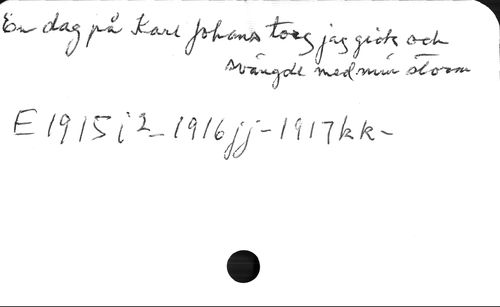 En dag på Karl Johans torg jag gick och
svängde med min storm
E 1915 i 2 - 1916 jj - 1917 kk -